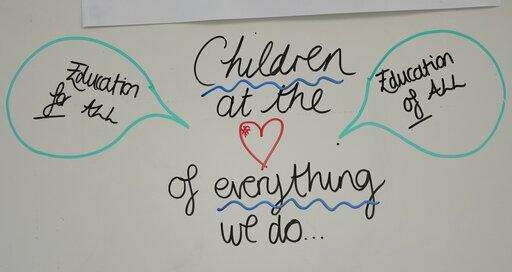 Education
for ALL
Children
at the
of everything
we do...
Education
of ALL